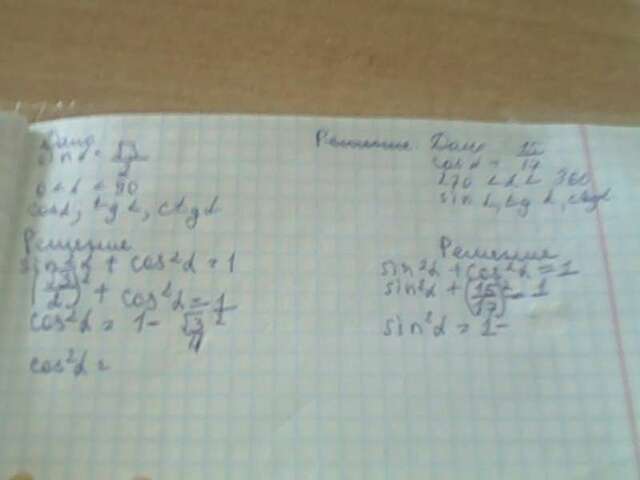 Дано
sin α = √3/2
0 < α < 90
cos α, tg α, ctg α
Решение
sin²α + cos²α = 1
(√3/2)² + cos²α = 1
cos²α = 1 - √3/4
cos²α =
Решение Дано
cos α = 15/17
270 < α < 360
sin α, tg α, ctg α
Решение
sin²α + cos²α = 1
sin²α + (15/17)² = 1
sin²α = 1 -